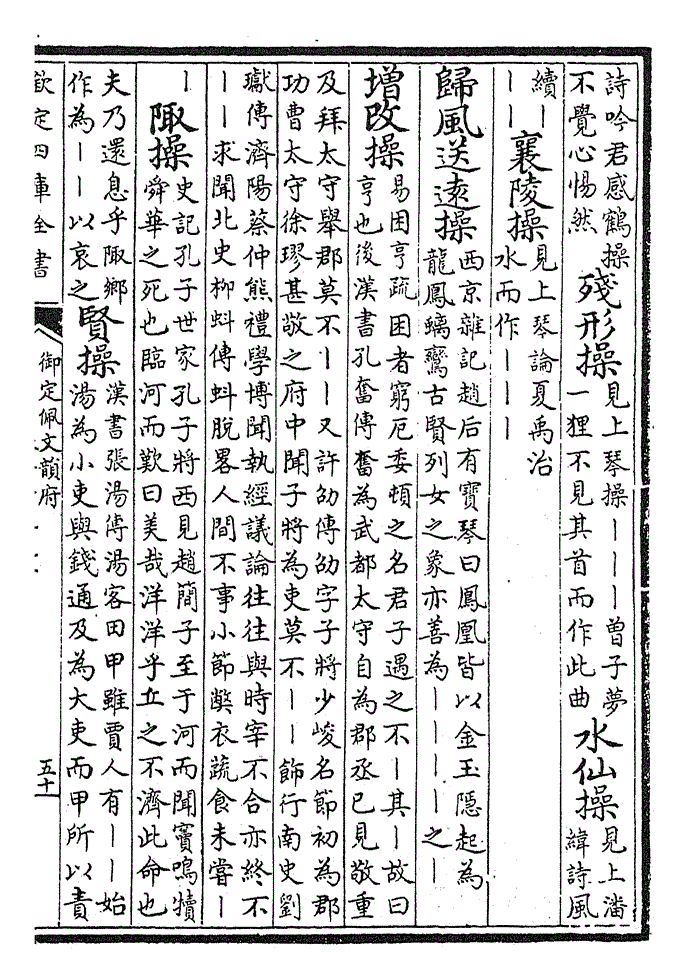 詩吟君感鶴操
不覺心惕然
殘形操
見上琴操｜｜｜曽子夢
一狸不見其首而作此曲
水仙操
見上潘
緯詩風
續｜
｜｜
襄陵操
見上琴論夏禹治
水而作｜｜｜
歸風送遠操
西京雜記趙后有寶琴曰鳳凰皆以金玉隱起為
龍鳳螭鸞古賢列女之象亦善為｜｜｜｜之｜
增改操
易困亨疏困者窮厄委頓之名君子遇之不｜其｜故曰
亨也後漢書孔奮傳奮為武都太守自為郡丞已見敬重
及拜太守舉郡莫不｜｜又許劭傳劭字子將少峻名節初為郡
功曹太守徐璆甚敬之府中聞子將為吏莫不｜｜飾行南史劉
瓛傳濟陽蔡仲熊禮學博聞執經議論往往與時宰不合亦終不
｜｜求聞北史柳蚪傳蚪脫畧人間不事小節獘衣蔬食未嘗｜
｜
陬操
史記孔子世家孔子將西見趙簡子至于河而聞竇鳴犢
舜華之死也臨河而歎曰美哉洋洋乎丘之不濟此命也
夫乃還息乎陬鄉
作為｜｜以哀之
賢操
漢書張湯傳湯客田甲雖賈人有｜｜始
湯為小吏與錢通及為大吏而甲所以責
欽定四庫全書
御定佩文韻府
五十